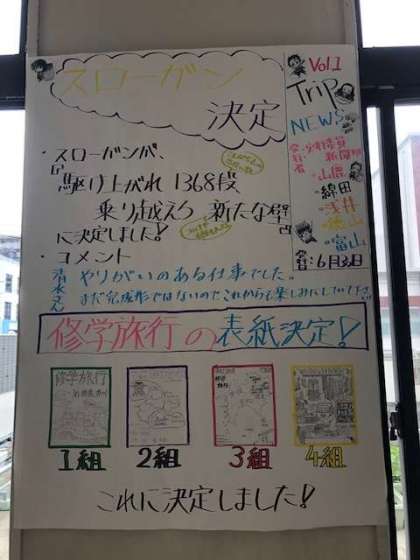 スローガン
決定
・スローガンが、
『駆け上がれ 1368段
乗り越えろ 新たな壁』
に決定しました!
・コメント
清水さん
やりがいのある仕事でした。
まだ完成形ではないのでこれからも楽しみにしていて下さい
Vol.1
Trip
NEWS
発行者
新聞班
山鹿
綿田
浅井
徳山
富山
6月3日
修学旅行の表紙決定!
修学旅行
1組
2組
3組
4組
これに決定しました!